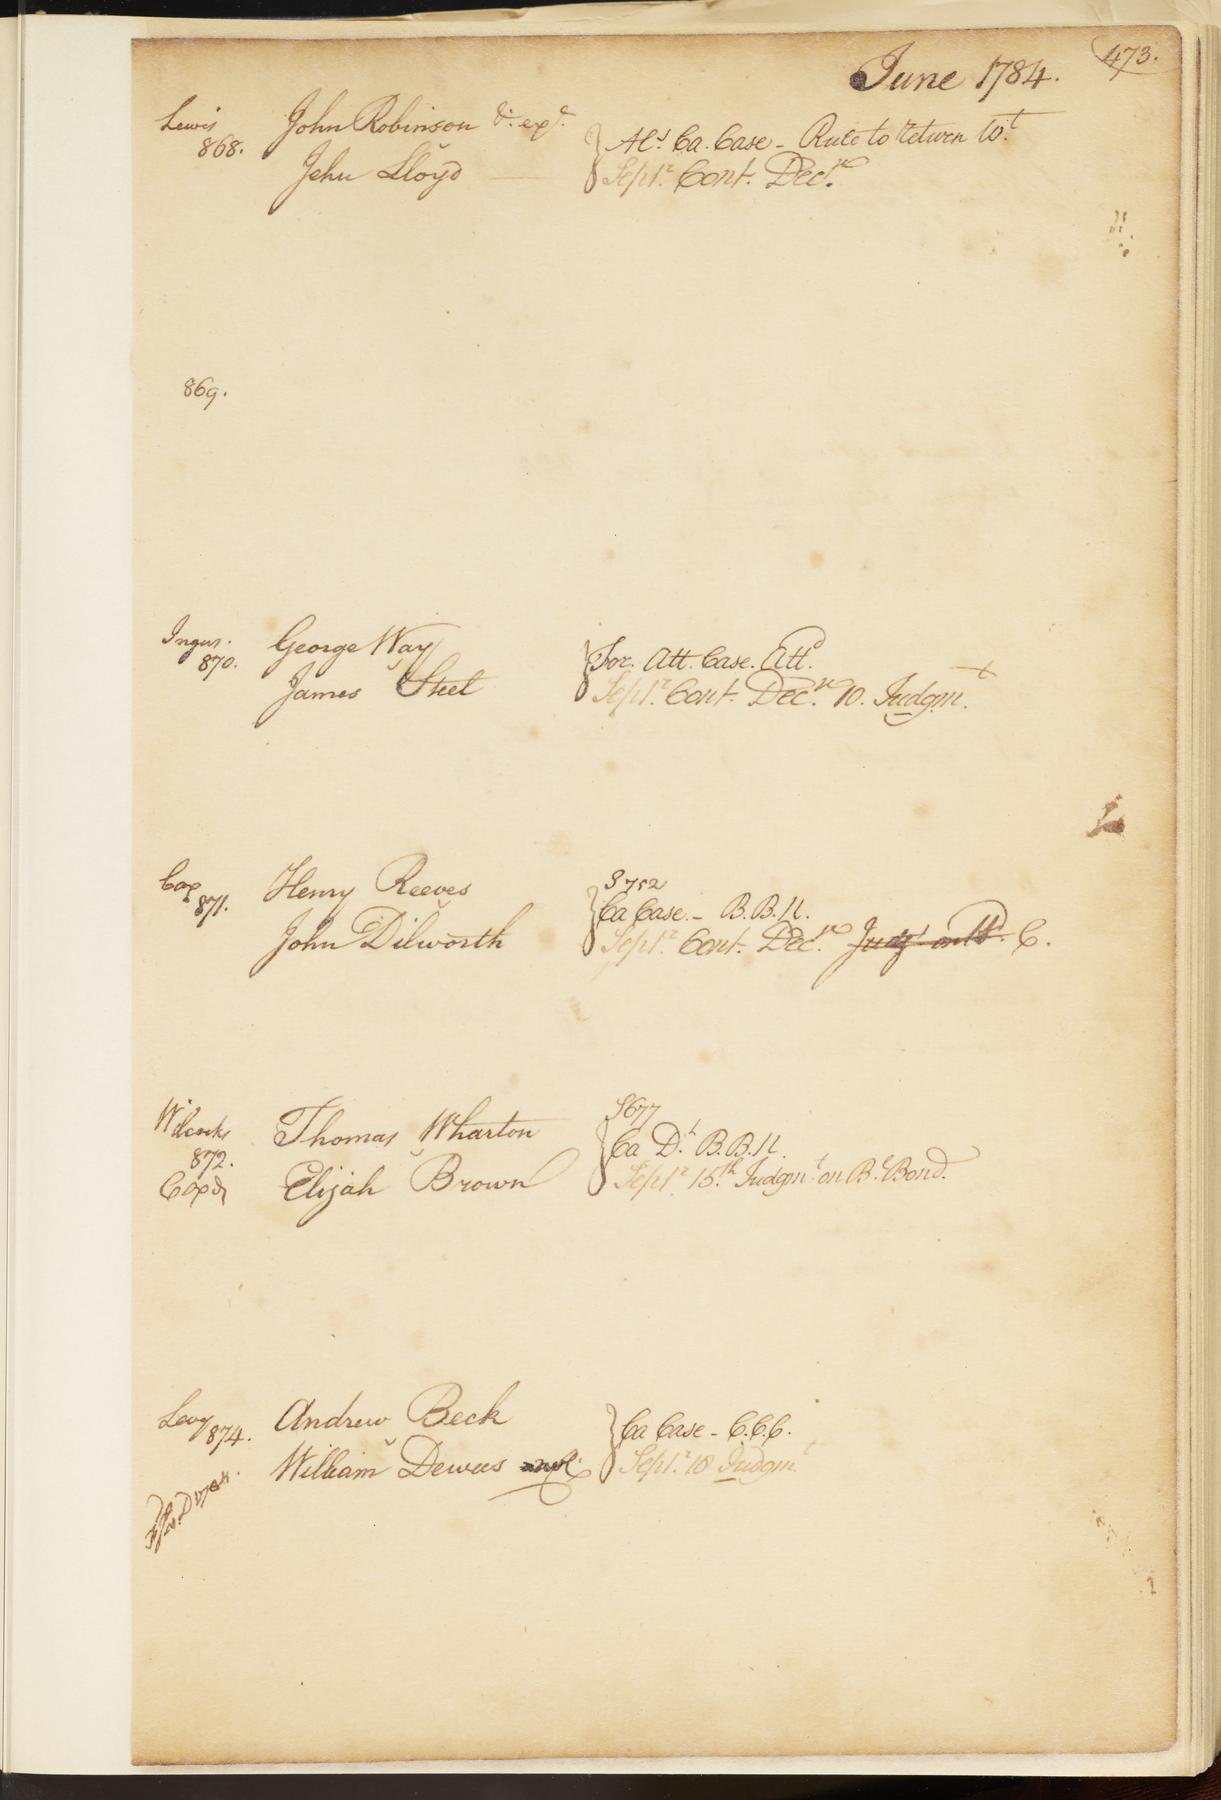 473.
June 1784.
Lewis
868.
John Robinson
v
Jehu Lloyd
Als Ca. Case - Rule to return Wt
Septr. Cont. Decr.
869.
Ingus.
870.
George Way
v
James Steel
For. Att. Case. Attd.
Septr. Cont. Decr. 10. Judgmt.
Cox
871.
Henry Reeves
v
John Dilworth
S 752
Ca Case. - B.B.R.
Septr. Cont. Decr. C.
Wilcocks
872.
Thomas Wharton
v
Elijah Brown
S677
Ca Dt. B.B.R.
Septr. 15th. Judgmt. on B. Bond.
Levy
874.
Andrew Beck
v
William Dewees
Ca Case - C.C.C.
Septr. 18 Judgmt.